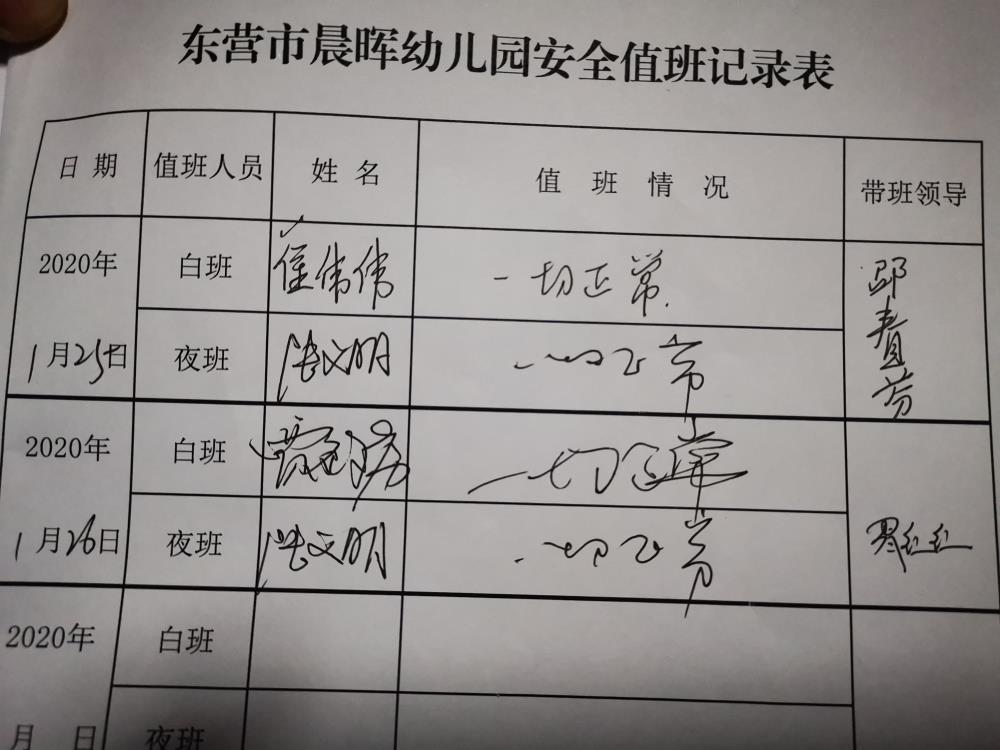 东营市晨晖幼儿园安全值班记录表
日期 值班人员 姓名 值班情况 带班领导
2020年 白班 崔伟伟 一切正常.
1月25日 夜班 张文明 一切正常
2020年 白班 一切正常
1月26日 夜班 张文明 一切正常
2020年 白班
月 日 夜班